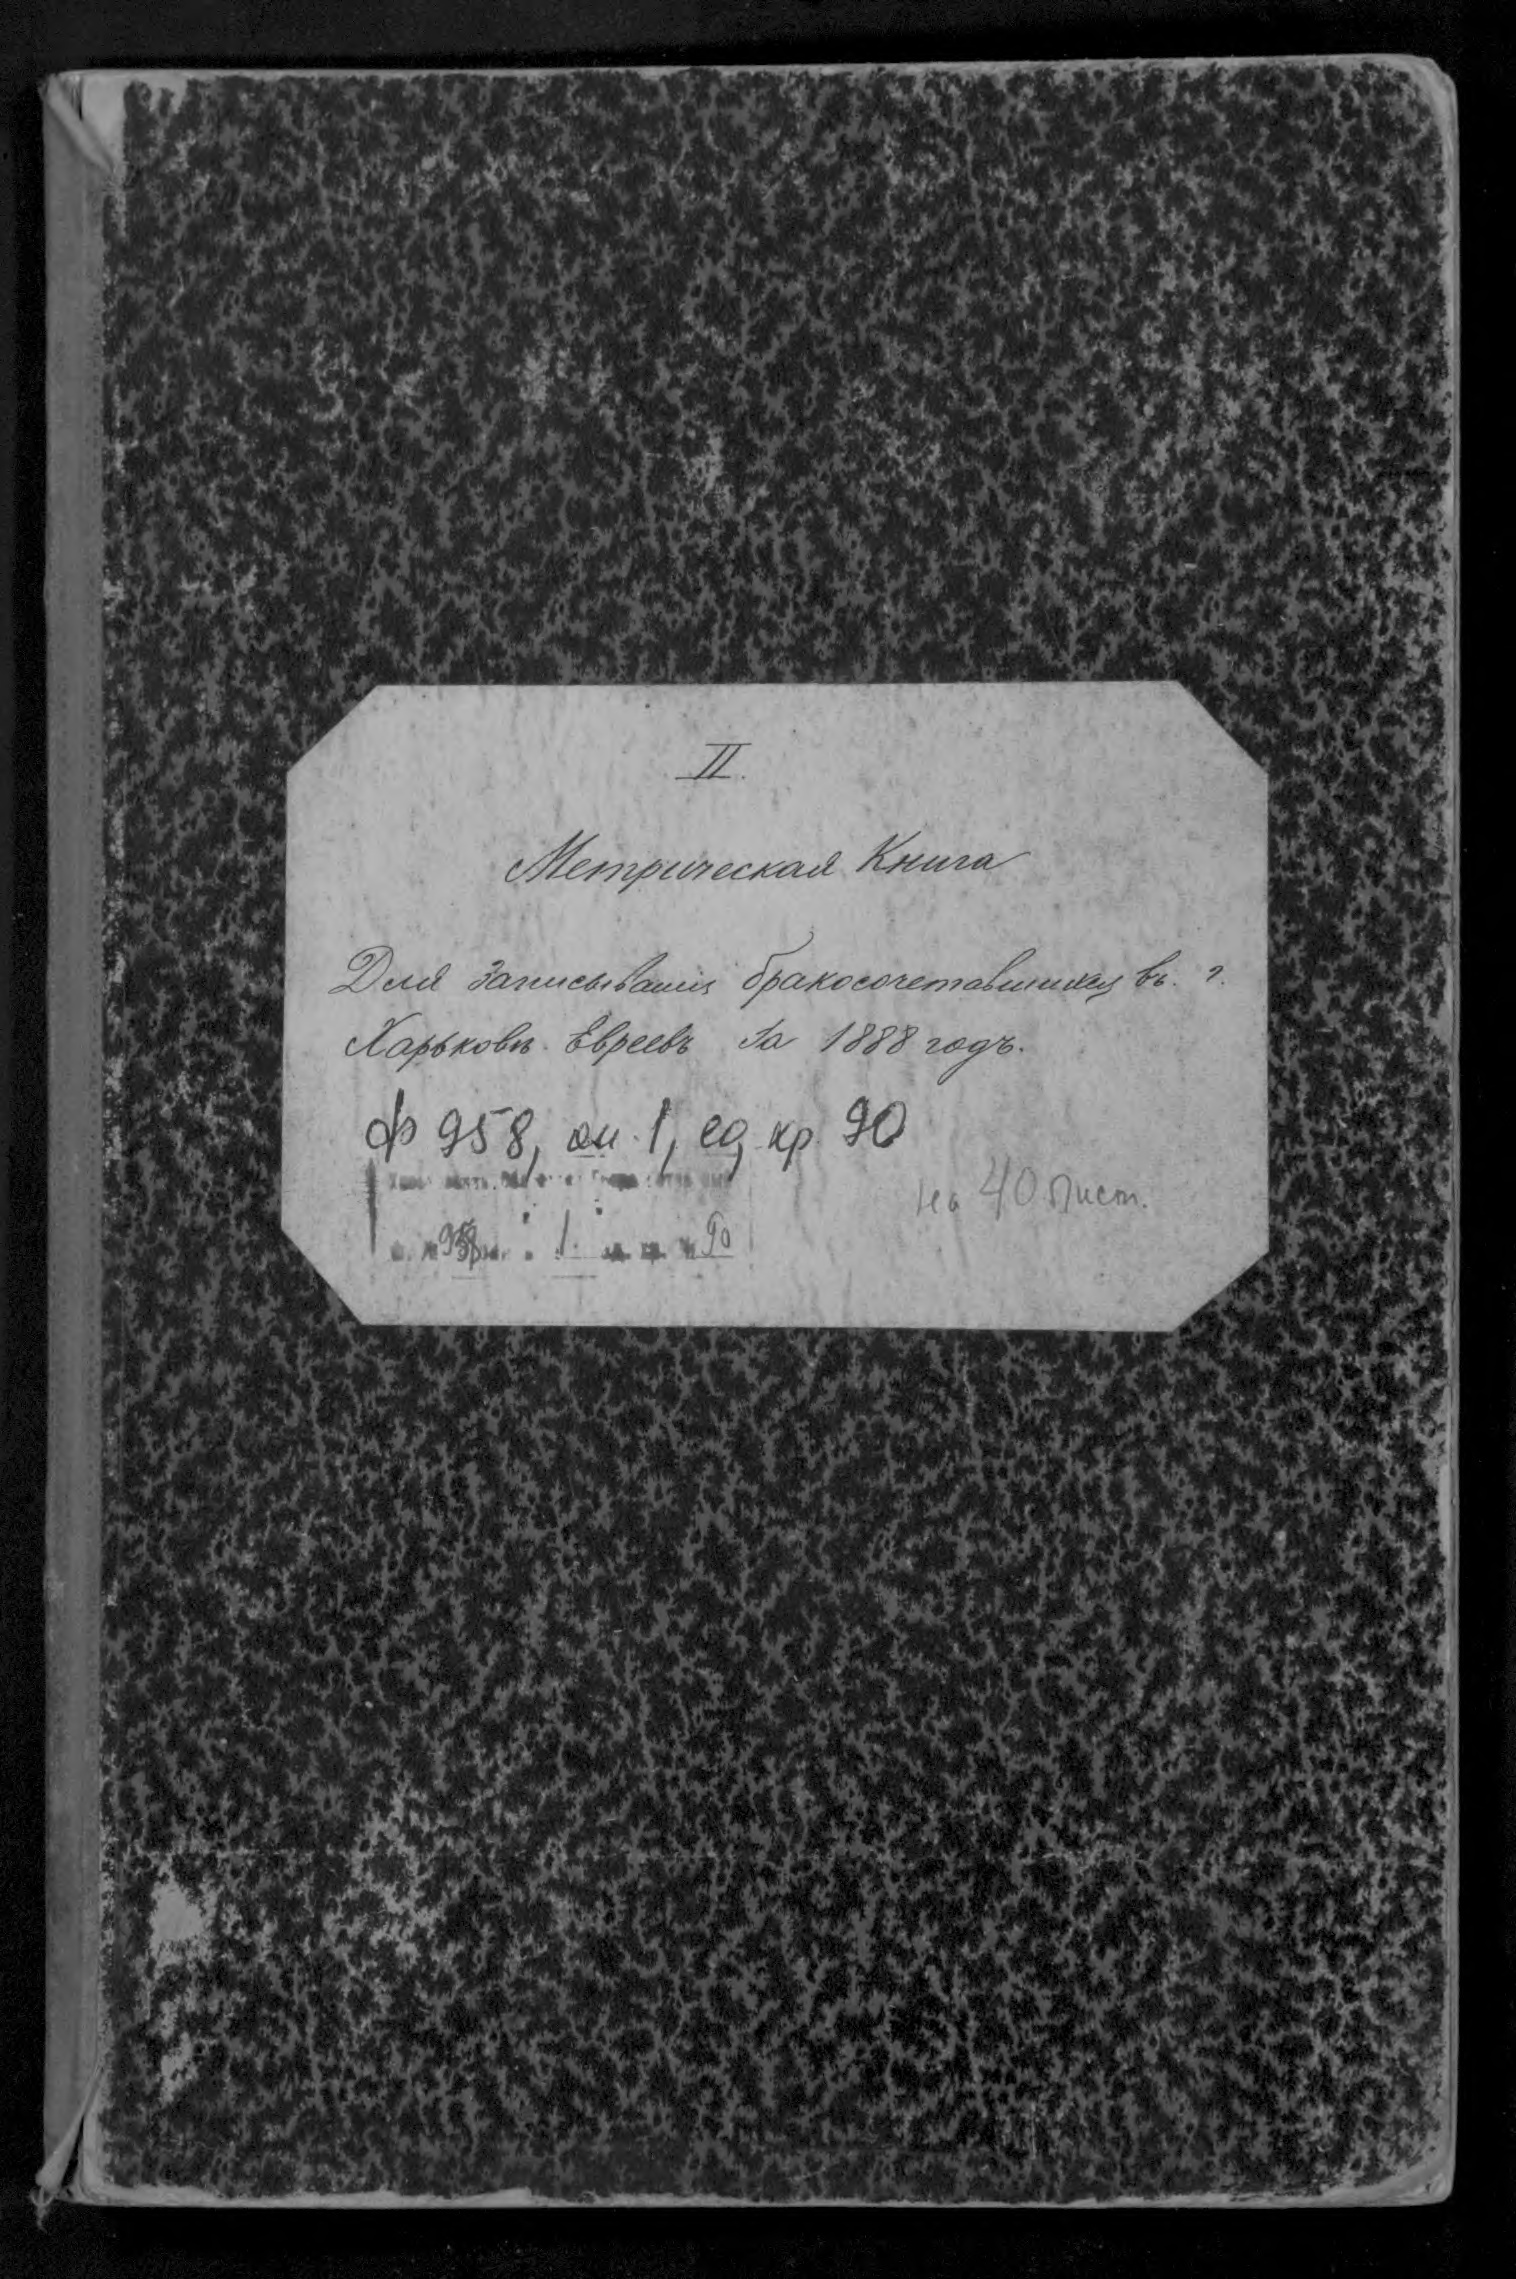 II.
Метрическая Книга
Для Записыванія бракосочетавшихся въ г.
Харьковѣ Евреевъ За 1888 годъ.
ф 958, оп. 1, ед хр. 90
на 40 лист.
958 1 ед. хр. № 90